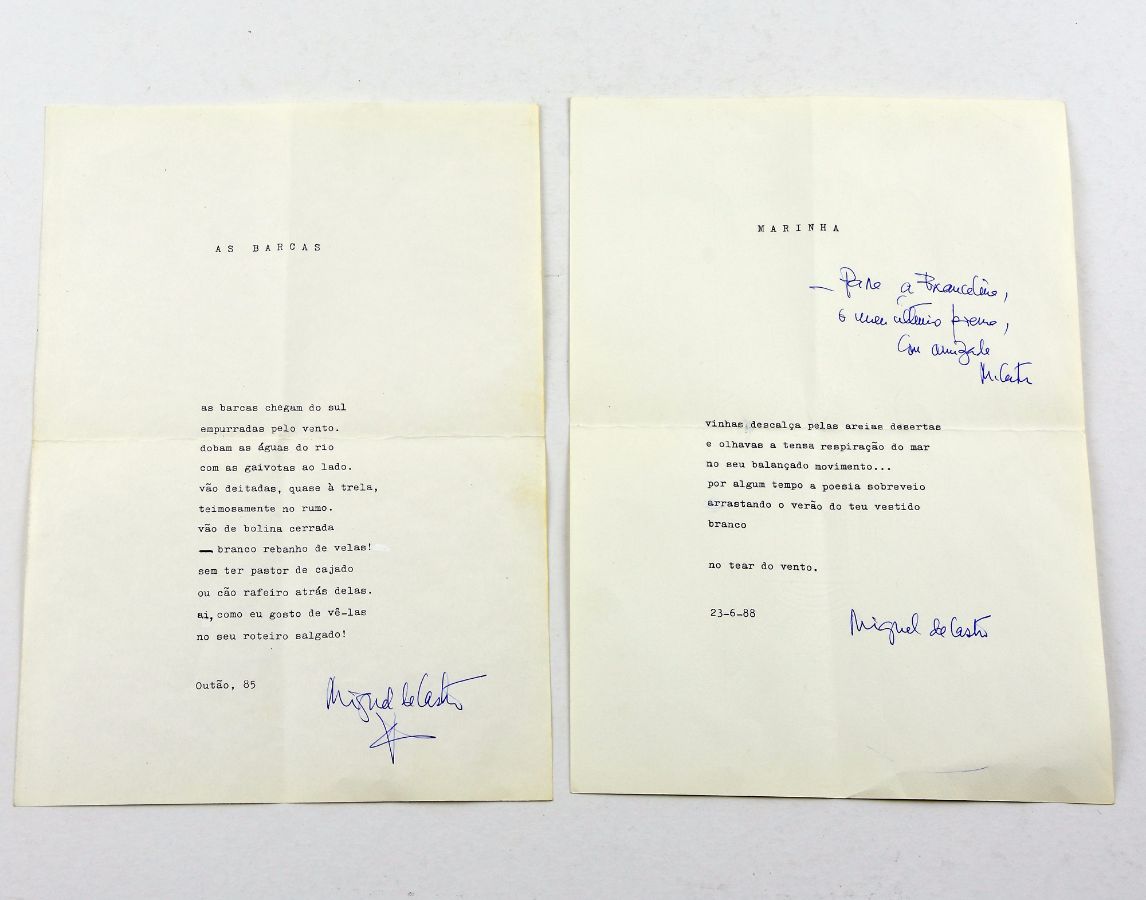 AS BARCAS
as barcas chegam do sul
empurradas pelo vento.
dobam as águas do rio
com as gaivotas ao lado.
vão deitadas, quase à trela,
teimosamente no rumo.
vão de bolina cerrada
— branco rebanho de velas!
sem ter pastor de cajado
ou cão rafeiro atrás delas.
ai, como eu gosto de vê-las
no seu roteiro salgado!
Outão, 85
Miguel de Castro
MARINHA
— Para a
o meu último
com amizade
M. Castro
vinhas descalça pelas areias desertas
e olhavas a tensa respiração do mar
no seu balançado movimento...
por algum tempo a poesia sobreveio
arrastando o verão do teu vestido
branco
no tear do vento.
23-6-88
Miguel de Castro